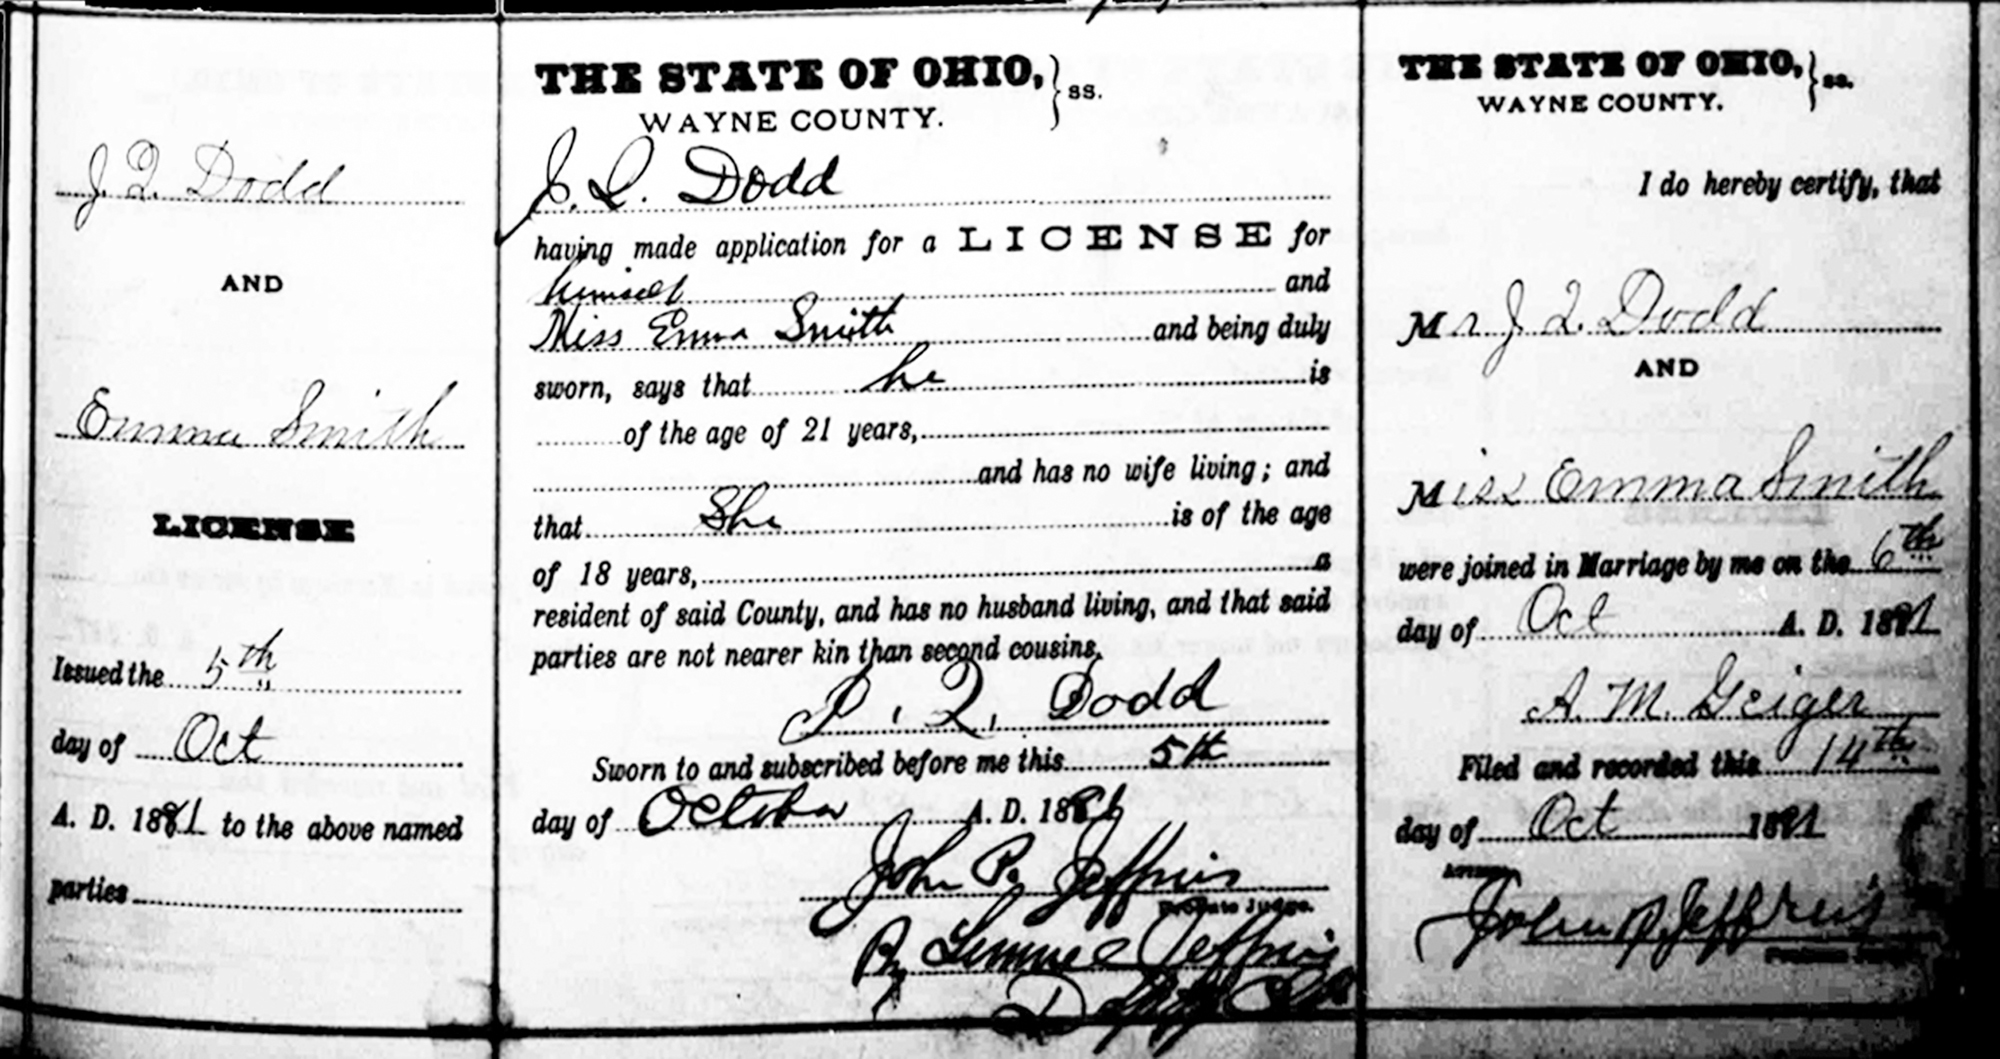 J. Q. Dodd
AND
Emma Smith
LICENSE
Issued the 5th
day of Oct
A. D. 1881 to the above named
parties
THE STATE OF OHIO, } ss.
WAYNE COUNTY.
J. Q. Dodd
having made application for a LICENSE for
himself and
Miss Emma Smith and being duly
sworn, says that he is
of the age of 21 years,
and has no wife living; and
that She is of the age
of 18 years, a
resident of said County, and has no husband living, and that said
parties are not nearer kin than second cousins.
J. Q. Dodd
Sworn to and subscribed before me this 5th
day of October A. D. 1881
John P. Jeffries
Probate Judge.
By Lemuel Jeffries
THE STATE OF OHIO, } ss.
WAYNE COUNTY.
I do hereby certify, that
Mr J. Q. Dodd
AND
Miss Emma Smith
were joined in Marriage by me on the 6th
day of Oct A. D. 1881
A. M. Geiger
Filed and recorded this 14th
day of Oct 1881
John P. Jeffries